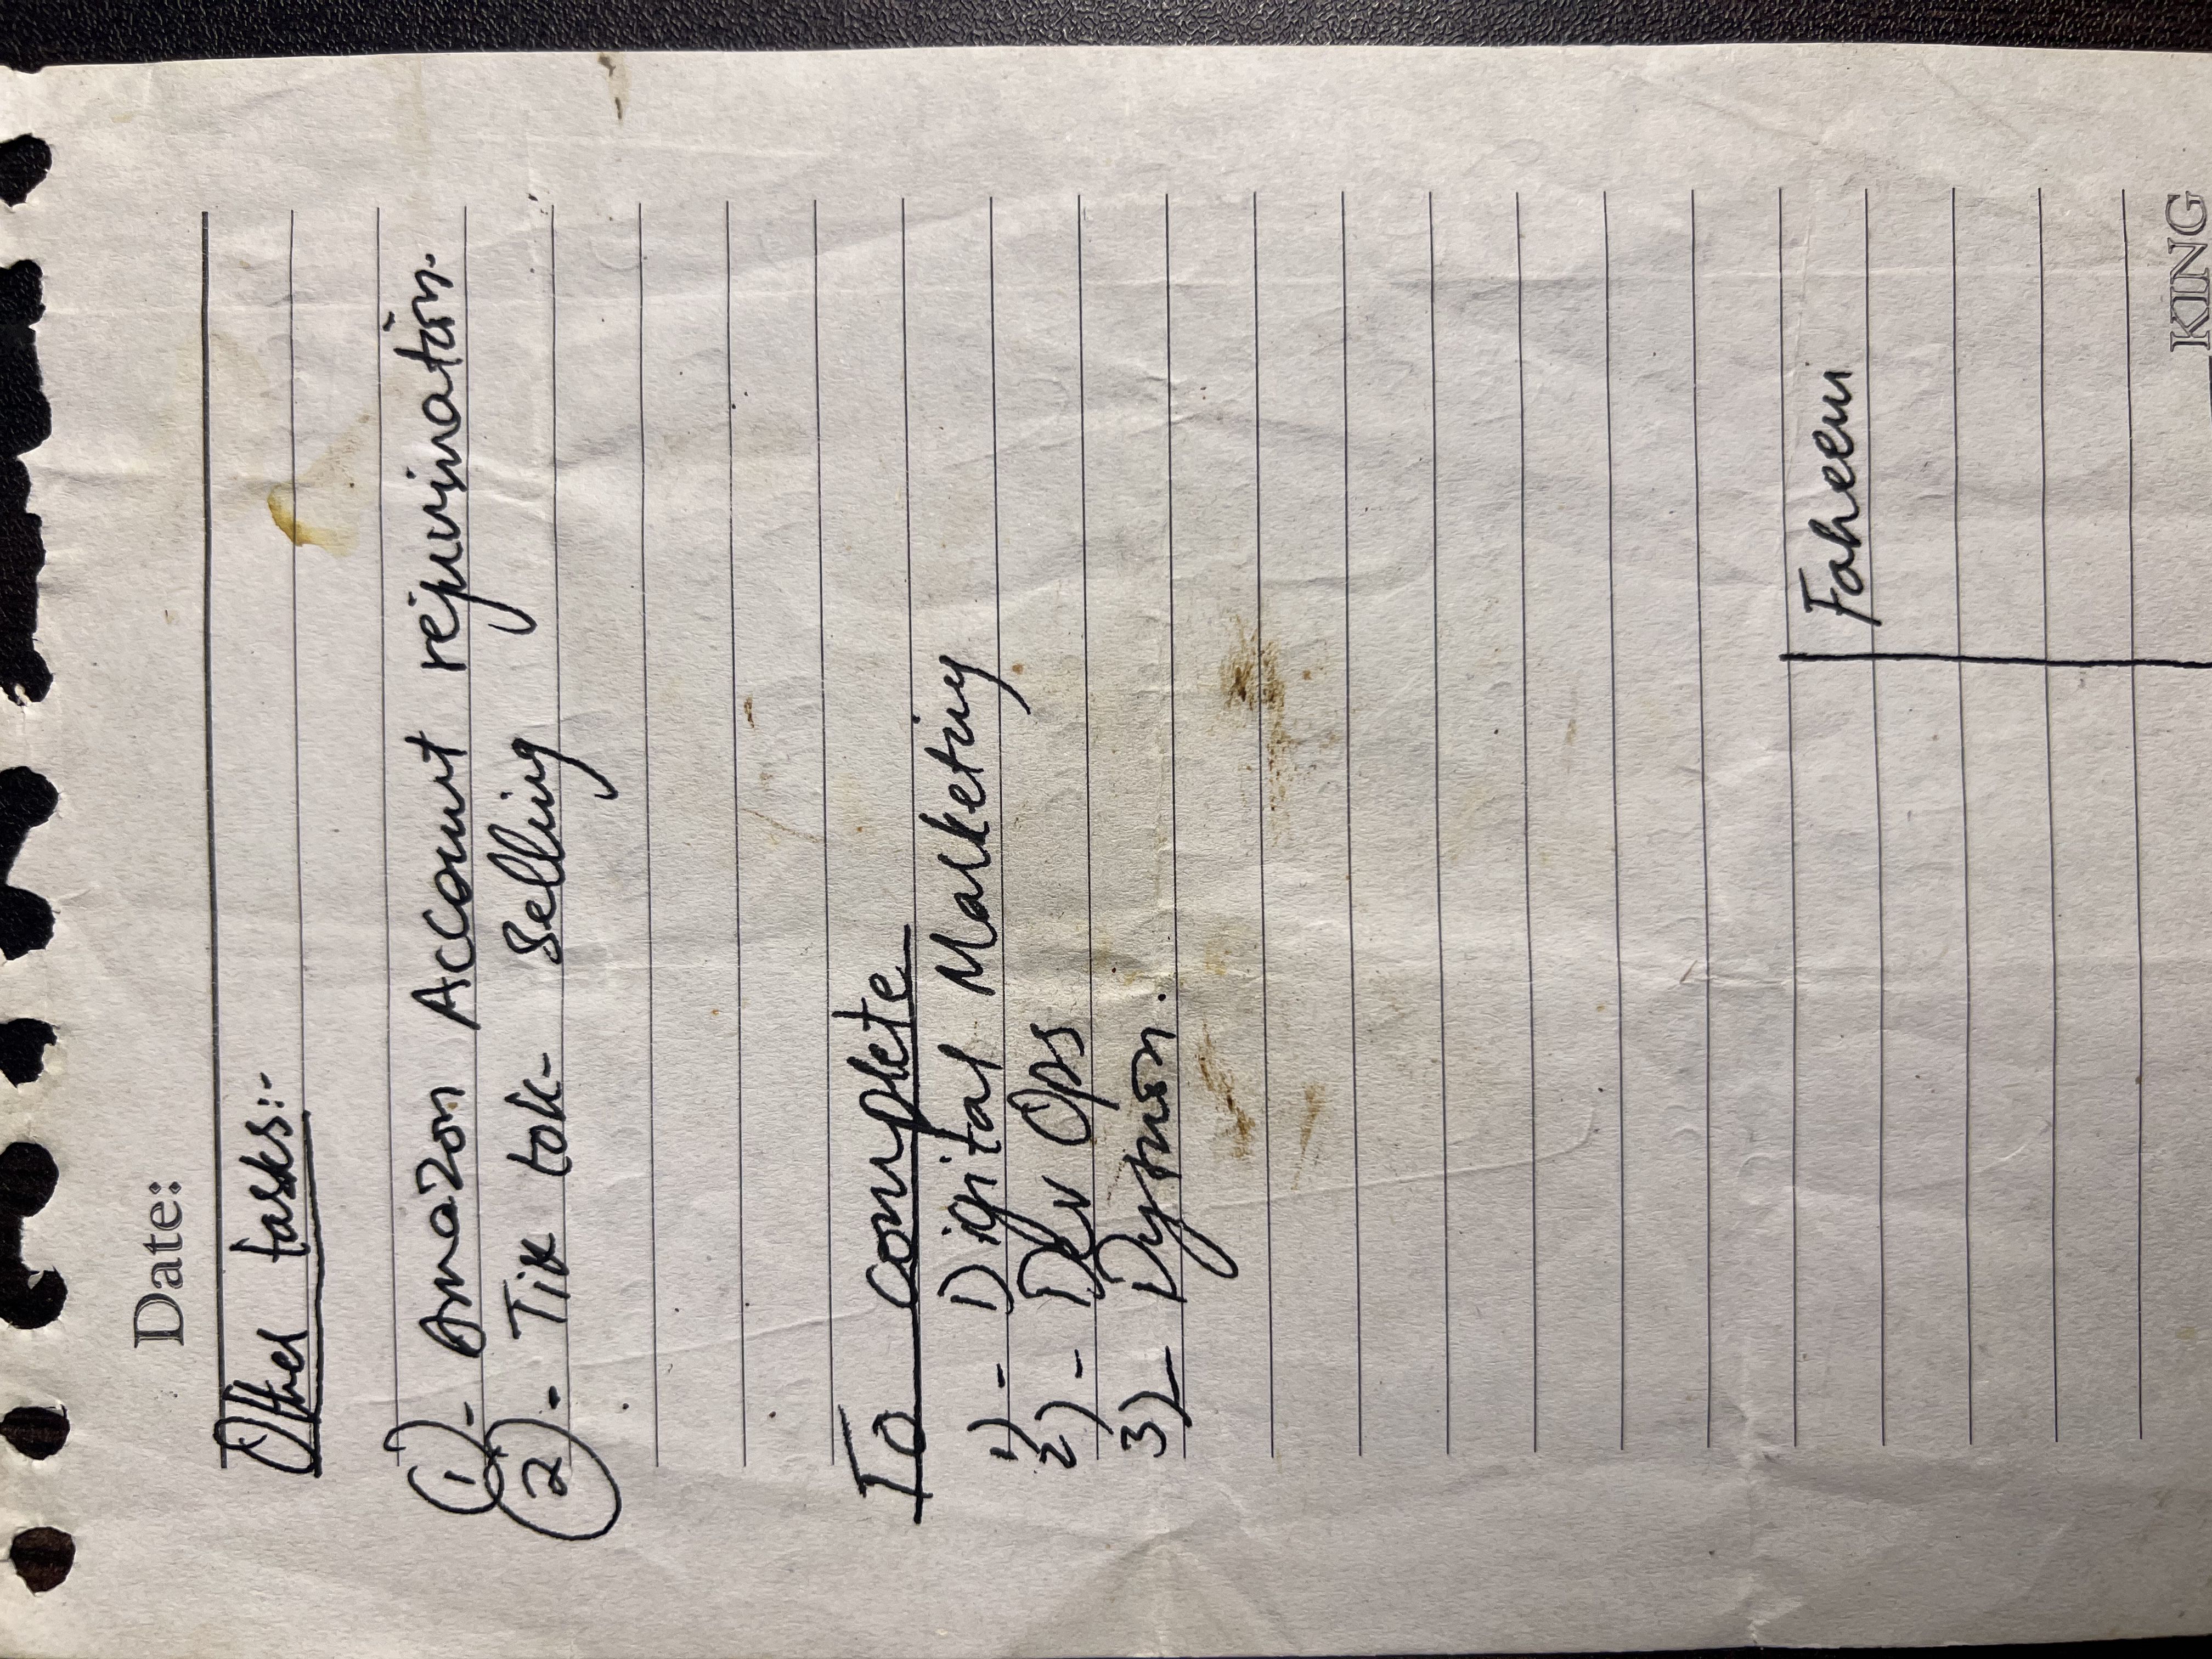 Date:
Other tasks:-
1)- Amazon Account rejuvination.
2)- Tik tok- Selling
To complete
1)- Digital Marketing
2)- Dev Ops
3)-
Faheem
KING